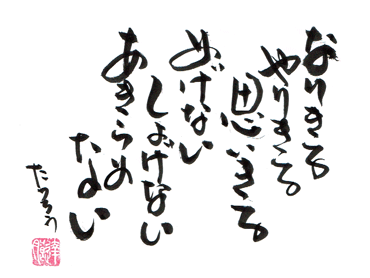 なりきる
やりきる
思いきる
めげない
しょげない
あきらめ
ない
たつろう